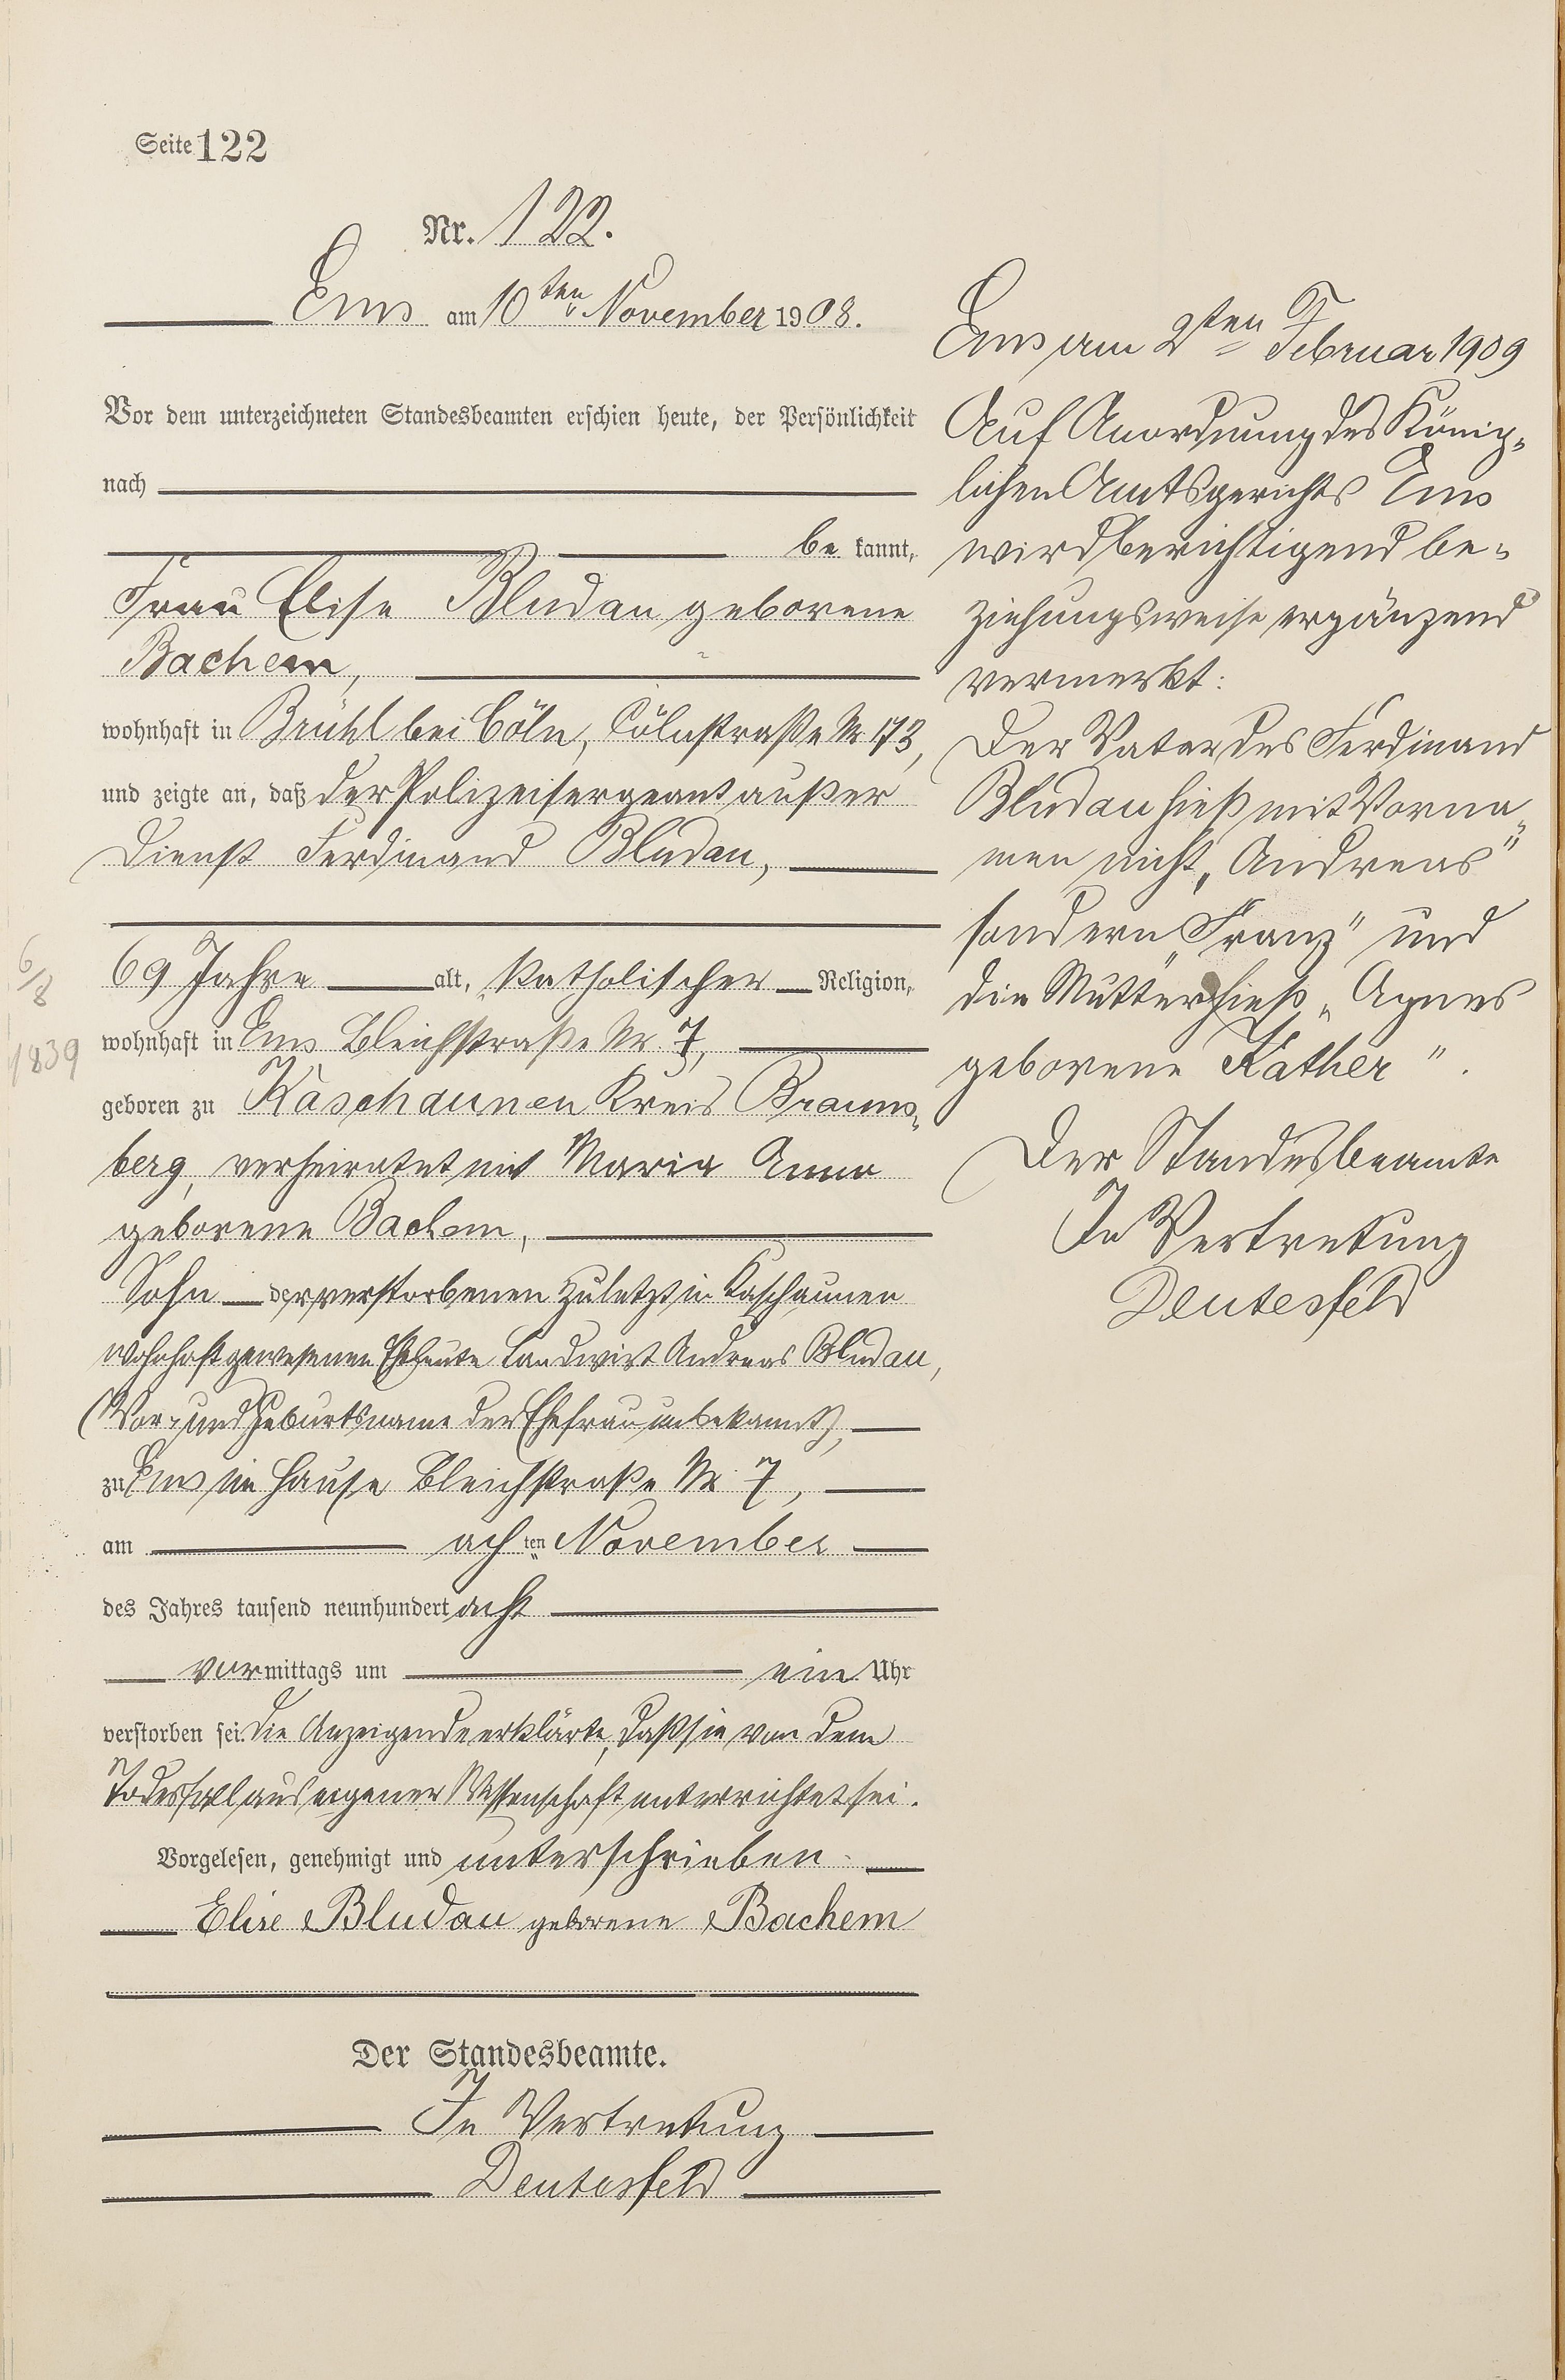 Seite 122
Nr. 122.
Ems am 10ten November 1908.
Vor dem unterzeichneten Standesbeamten erschien heute, der Persönlichkeit
nach
be kannt,
Frau Elise Bludau geborene
Bachem,
wohnhaft in Brühl bei Cöln, Cölnstraße Nr 173,
und zeigte an, daß der Polizeisergeant außer
Dienst Ferdinand Bludau,
69 Jahre alt, katholischer Religion,
wohnhaft in Ems Bleichstraße Nr. 7,
geboren zu Kaschaunen Kreis Brauns-
berg, verheiratet mit Maria Anna
geborene Bachem,
Sohn der verstorbenen zuletzt in Kaschaunen
wohnhaft gewesenen Eheleute Landwirt Andreas Bludau,
(Vor- und Geburtsname der Ehefrau unbekannt),
zu Ems im Hause Bleichstraße Nr. 7,
am achten November
des Jahres tausend neunhundert acht
vormittags um ein Uhr
verstorben sei. Die Anzeigende erklärte, daß sie von dem
Todesfall aus eigener Wissenschaft unterrichtet sei.
Vorgelesen, genehmigt und unterschrieben
Elise Bludau geborene Bachem
Der Standesbeamte.
In Vertretung
Deutesfeld
6/8
1839
Ems am 2ten Februar 1909
Auf Anordnung des König-
lichen Amtsgerichts Ems
wird berichtigend be-
ziehungsweise ergänzend
vermerkt:
Der Vater des Ferdinand
Bludau hieß mit Vorna-
men nicht „Andreas"
sondern „Franz" und
die Mutter hieß „Agnes
geborene Kather".
Der Standesbeamte
In Vertretung
Deutesfeld